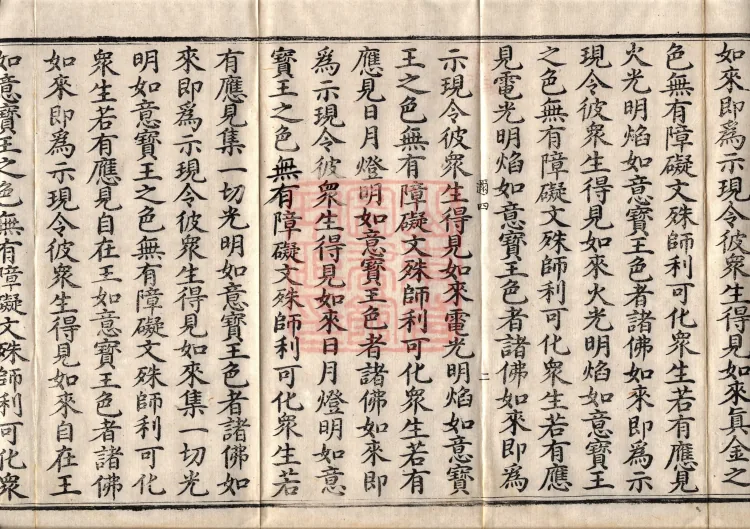 如來即為示現令彼衆生得見如來真金之
色無有障礙文殊師利可化衆生若有應見
火光明焰如意寶王色者諸佛如來即為示
現令彼衆生得見如來火光明焰如意寶王
之色無有障礙文殊師利可化衆生若有應
見電光明焰如意寶王色者諸佛如來即為
四 二
示現令彼衆生得見如來電光明焰如意寶
王之色無有障礙文殊師利可化衆生若有
應見日月燈明如意寶王色者諸佛如來即
為示現令彼衆生得見如來日月燈明如意
寶王之色無有障礙文殊師利可化衆生若
有應見集一切光明如意寶王色者諸佛如
來即為示現令彼衆生得見如來集一切光
明如意寶王之色無有障礙文殊師利可化
衆生若有應見自在王如意寶王色者諸佛
如來即為示現令彼衆生得見如來自在王
如意寶王之色無有障礙文殊師利可化衆